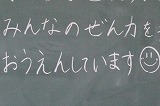 みんなのぜん力を
おうえんしています